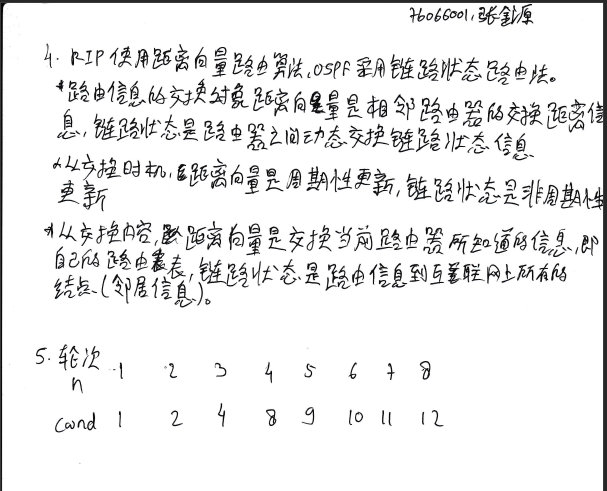 76066001,张金源
4. RIP使用距离向量路由算法,OSPF采用链路状态路由法。
*路由信息的交换对象距离向量是相邻路由器的交换距离信
息,链路状态是路由器之间动态交换链路状态信息
*从交换时机,距离向量是周期性更新,链路状态是非周期性
更新
*从交换内容,距离向量是交换当前路由器所知道的信息,即
自己的路由表,链路状态是路由信息到互联网上所有的
结点(邻居信息)。
5. 轮次 1 2 3 4 5 6 7 8
n
cwnd 1 2 4 8 9 10 11 12